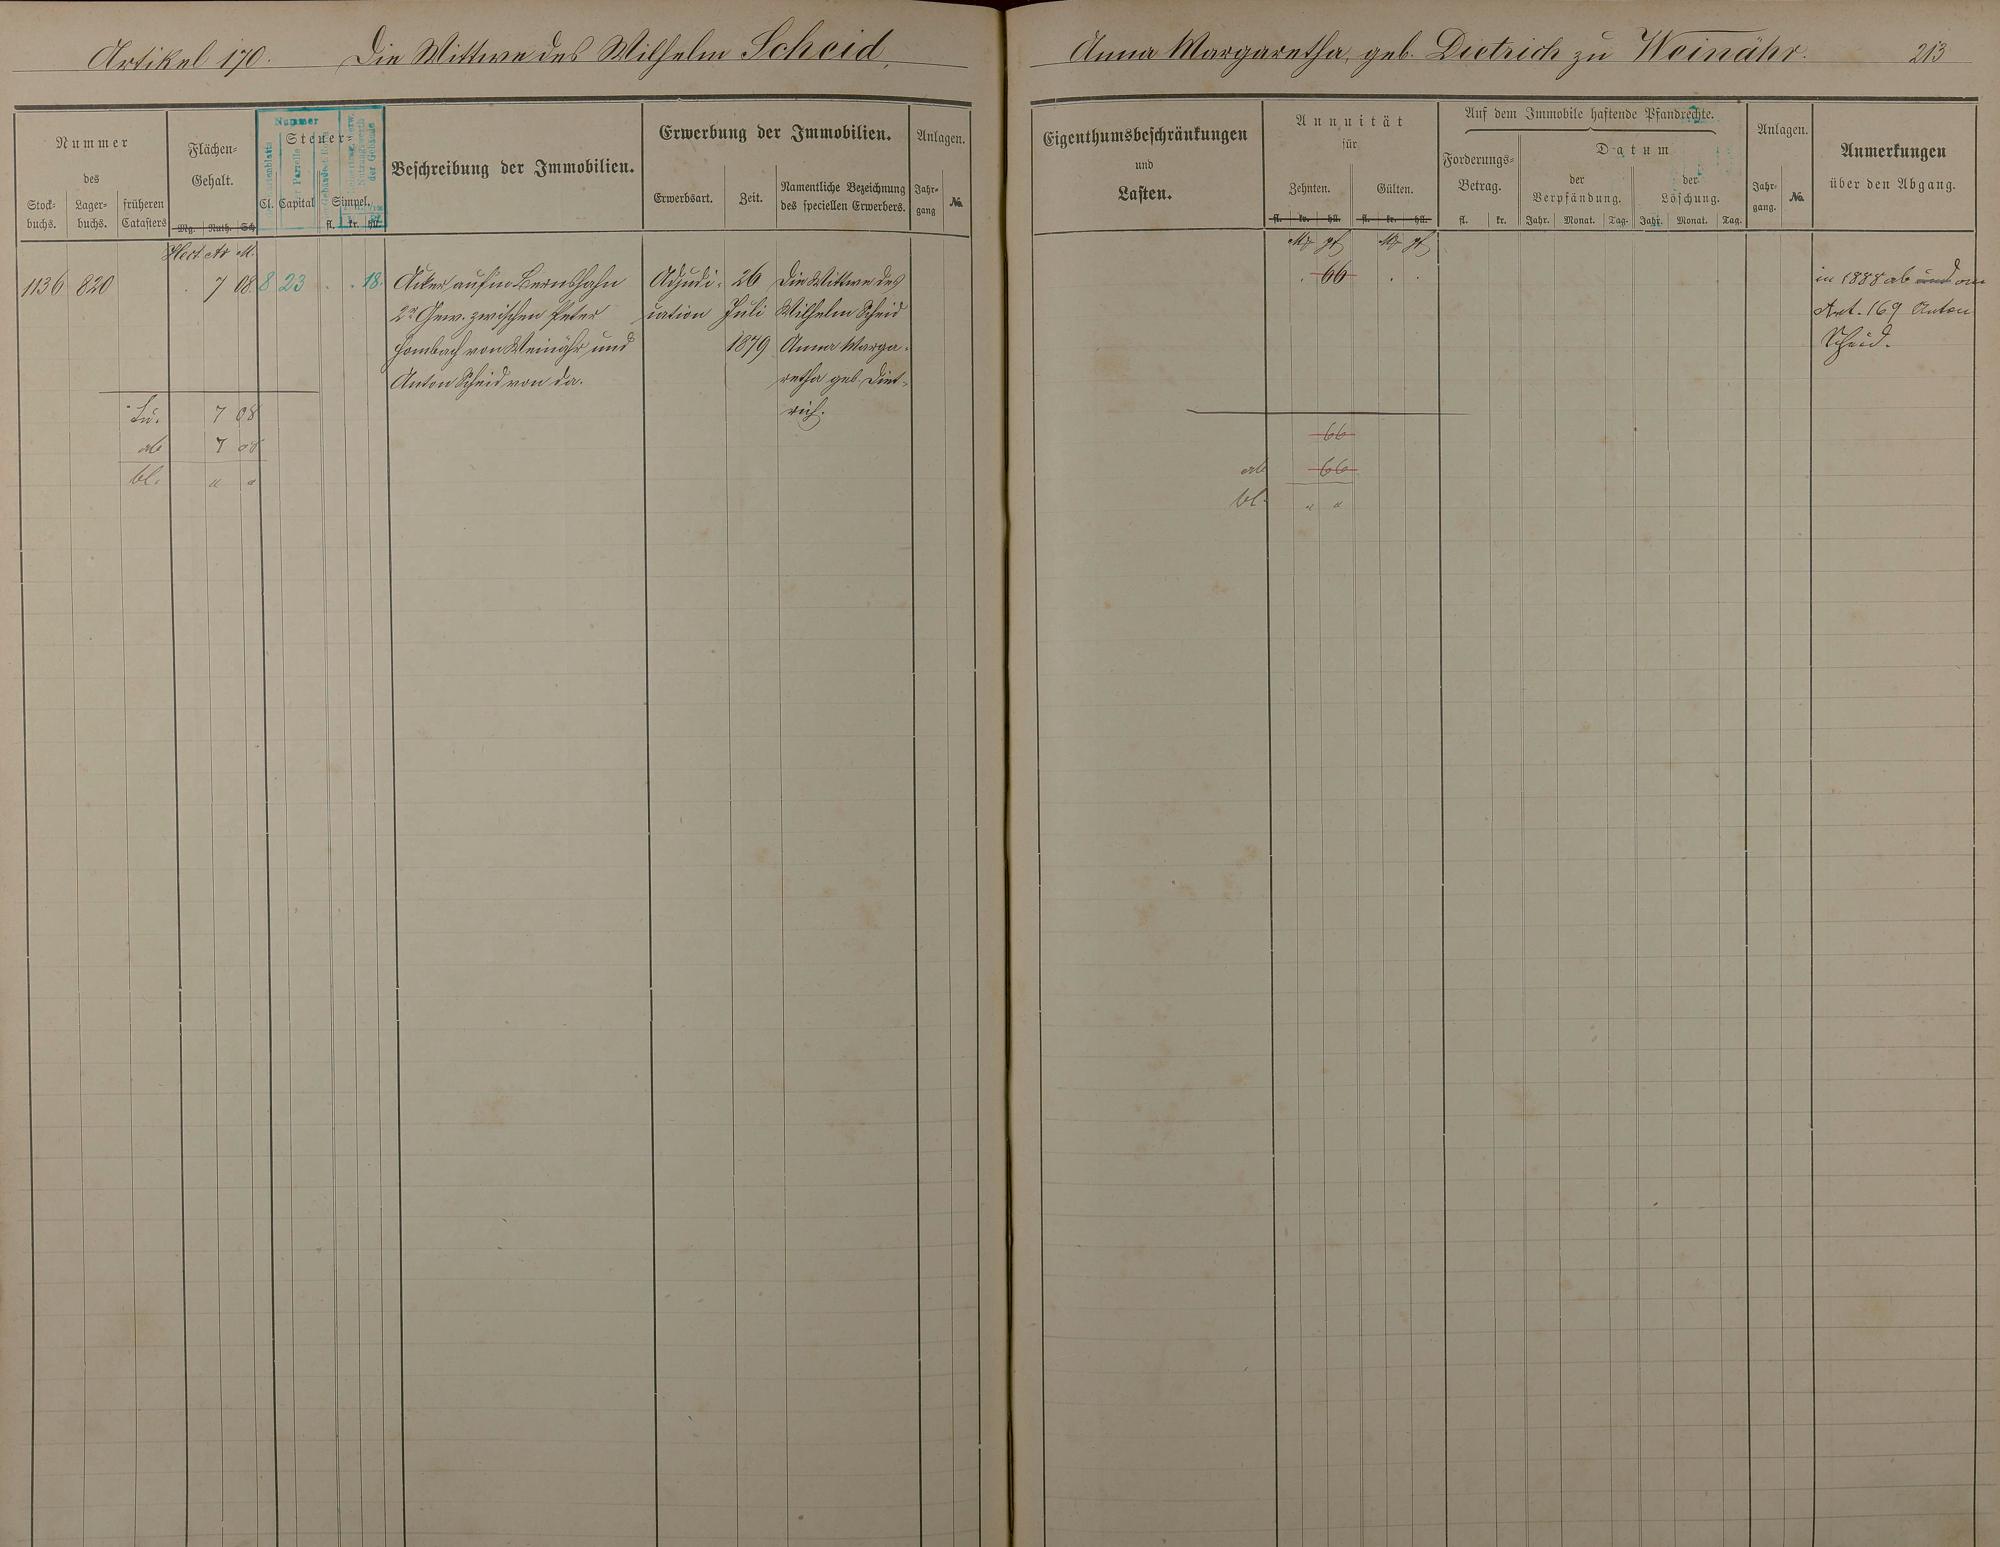 Artikel 170. Die Wittwe des Wilhelm Scheid,
Anna Margaretha, geb. Dietrich zu Weinähr. 213
Nummer
des
Stock-
buchs.
Lager-
buchs.
früheren
Catasters
Flächen-
Gehalt.
Mg. Ruth. Sch.
Hect. Ar M.
Nummer
Steuer-
Cl. Capital Simpel.
fl. kr. hll.
Beschreibung der Immobilien.
Erwerbung der Immobilien.
Erwerbsart. Zeit.
Namentliche Bezeichnung
des speciellen Erwerbers.
Anlagen.
Jahr-
gang
No.
Eigenthumsbeschränkungen
und
Lasten.
Annuität
für
Zehnten. Gülten.
fl. kr. hll. fl. kr. hll.
M pf M pf
Auf dem Immobile haftende Pfandrechte.
Forderungs-
Betrag.
fl. kr.
Datum
der
Verpfändung.
Jahr. Monat. Tag.
der
Löschung.
Jahr. Monat. Tag.
Anlagen.
Jahr-
gang.
No.
Anmerkungen
über den Abgang.
1136 820 7 08 8 23 18.
Acker auf'm Bernshahn
2r Gew. zwischen Peter
Hombach von Weinähr und
Anton Scheid von da.
Adjudi-
cation
26
Juli
1879
Die Wittwe des
Wilhelm Scheid
Anna Marga-
retha geb. Diet-
rich.
66
in 1888 ab und an
Art. 169 Anton
Scheid.
Su. 7 08
ab 7 08
bl. " "
66
ab 66
bl. " "